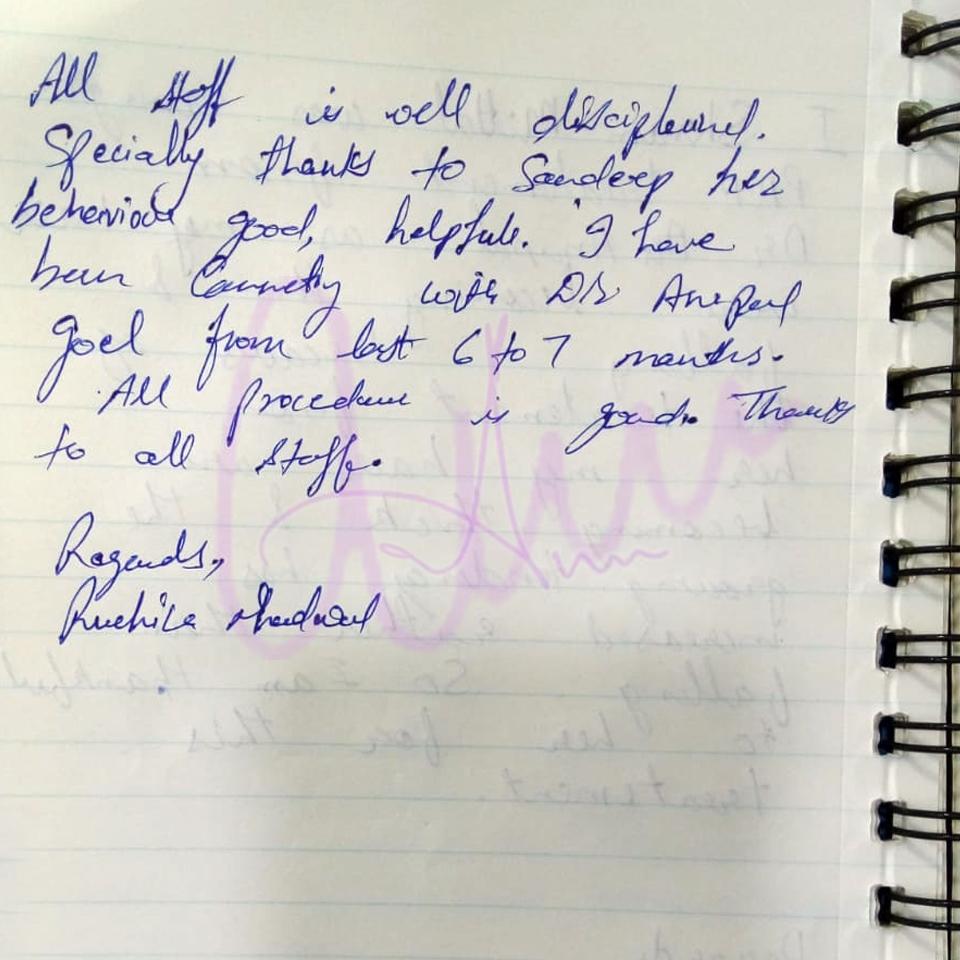 All staff is well disciplined.
Specially thanks to Sandeep her
behaviour good, helpful. I have
been with Dr
Goel from last 6 to 7 months.
All procedure is good. Thanks
to all staff.
Regards,
Ruchika